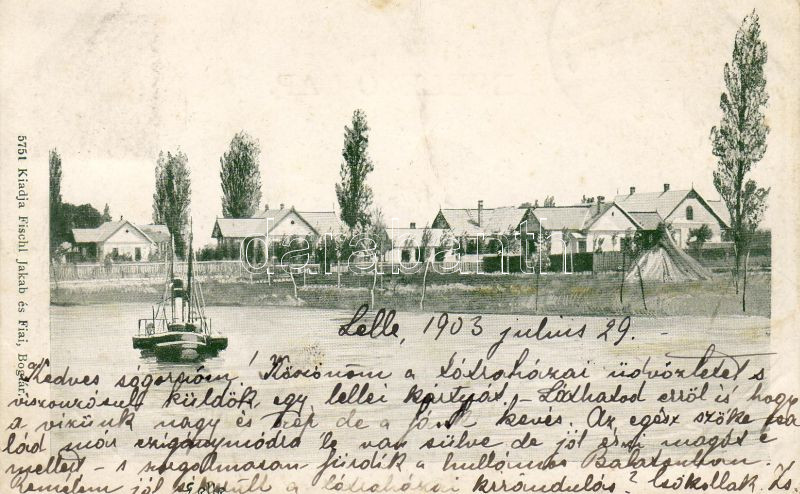 5751 Kiadja Fischl Jakab és Fiai, Boglár
darabanth
Lelle, 1903 julius 29.
Kedves sógornőm! Köszönöm a Tátraházai üdvözletet s
viszonzásul küldök egy lellei kártyát. - Láthatod erről is hogy
a vizünk nagy és szép de a fánk kevés. Az egész szőke csa-
lád már czigánymódra le van sülve de jól érzi magát e
mellett - s szorgalmasan fürdik a hullámos Balatonban.
Remélem jól sikerült a tátraházai kirándulás? Csókollak. Zs.